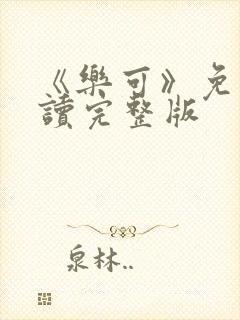 《樂可》免
讀完整版
泉林..